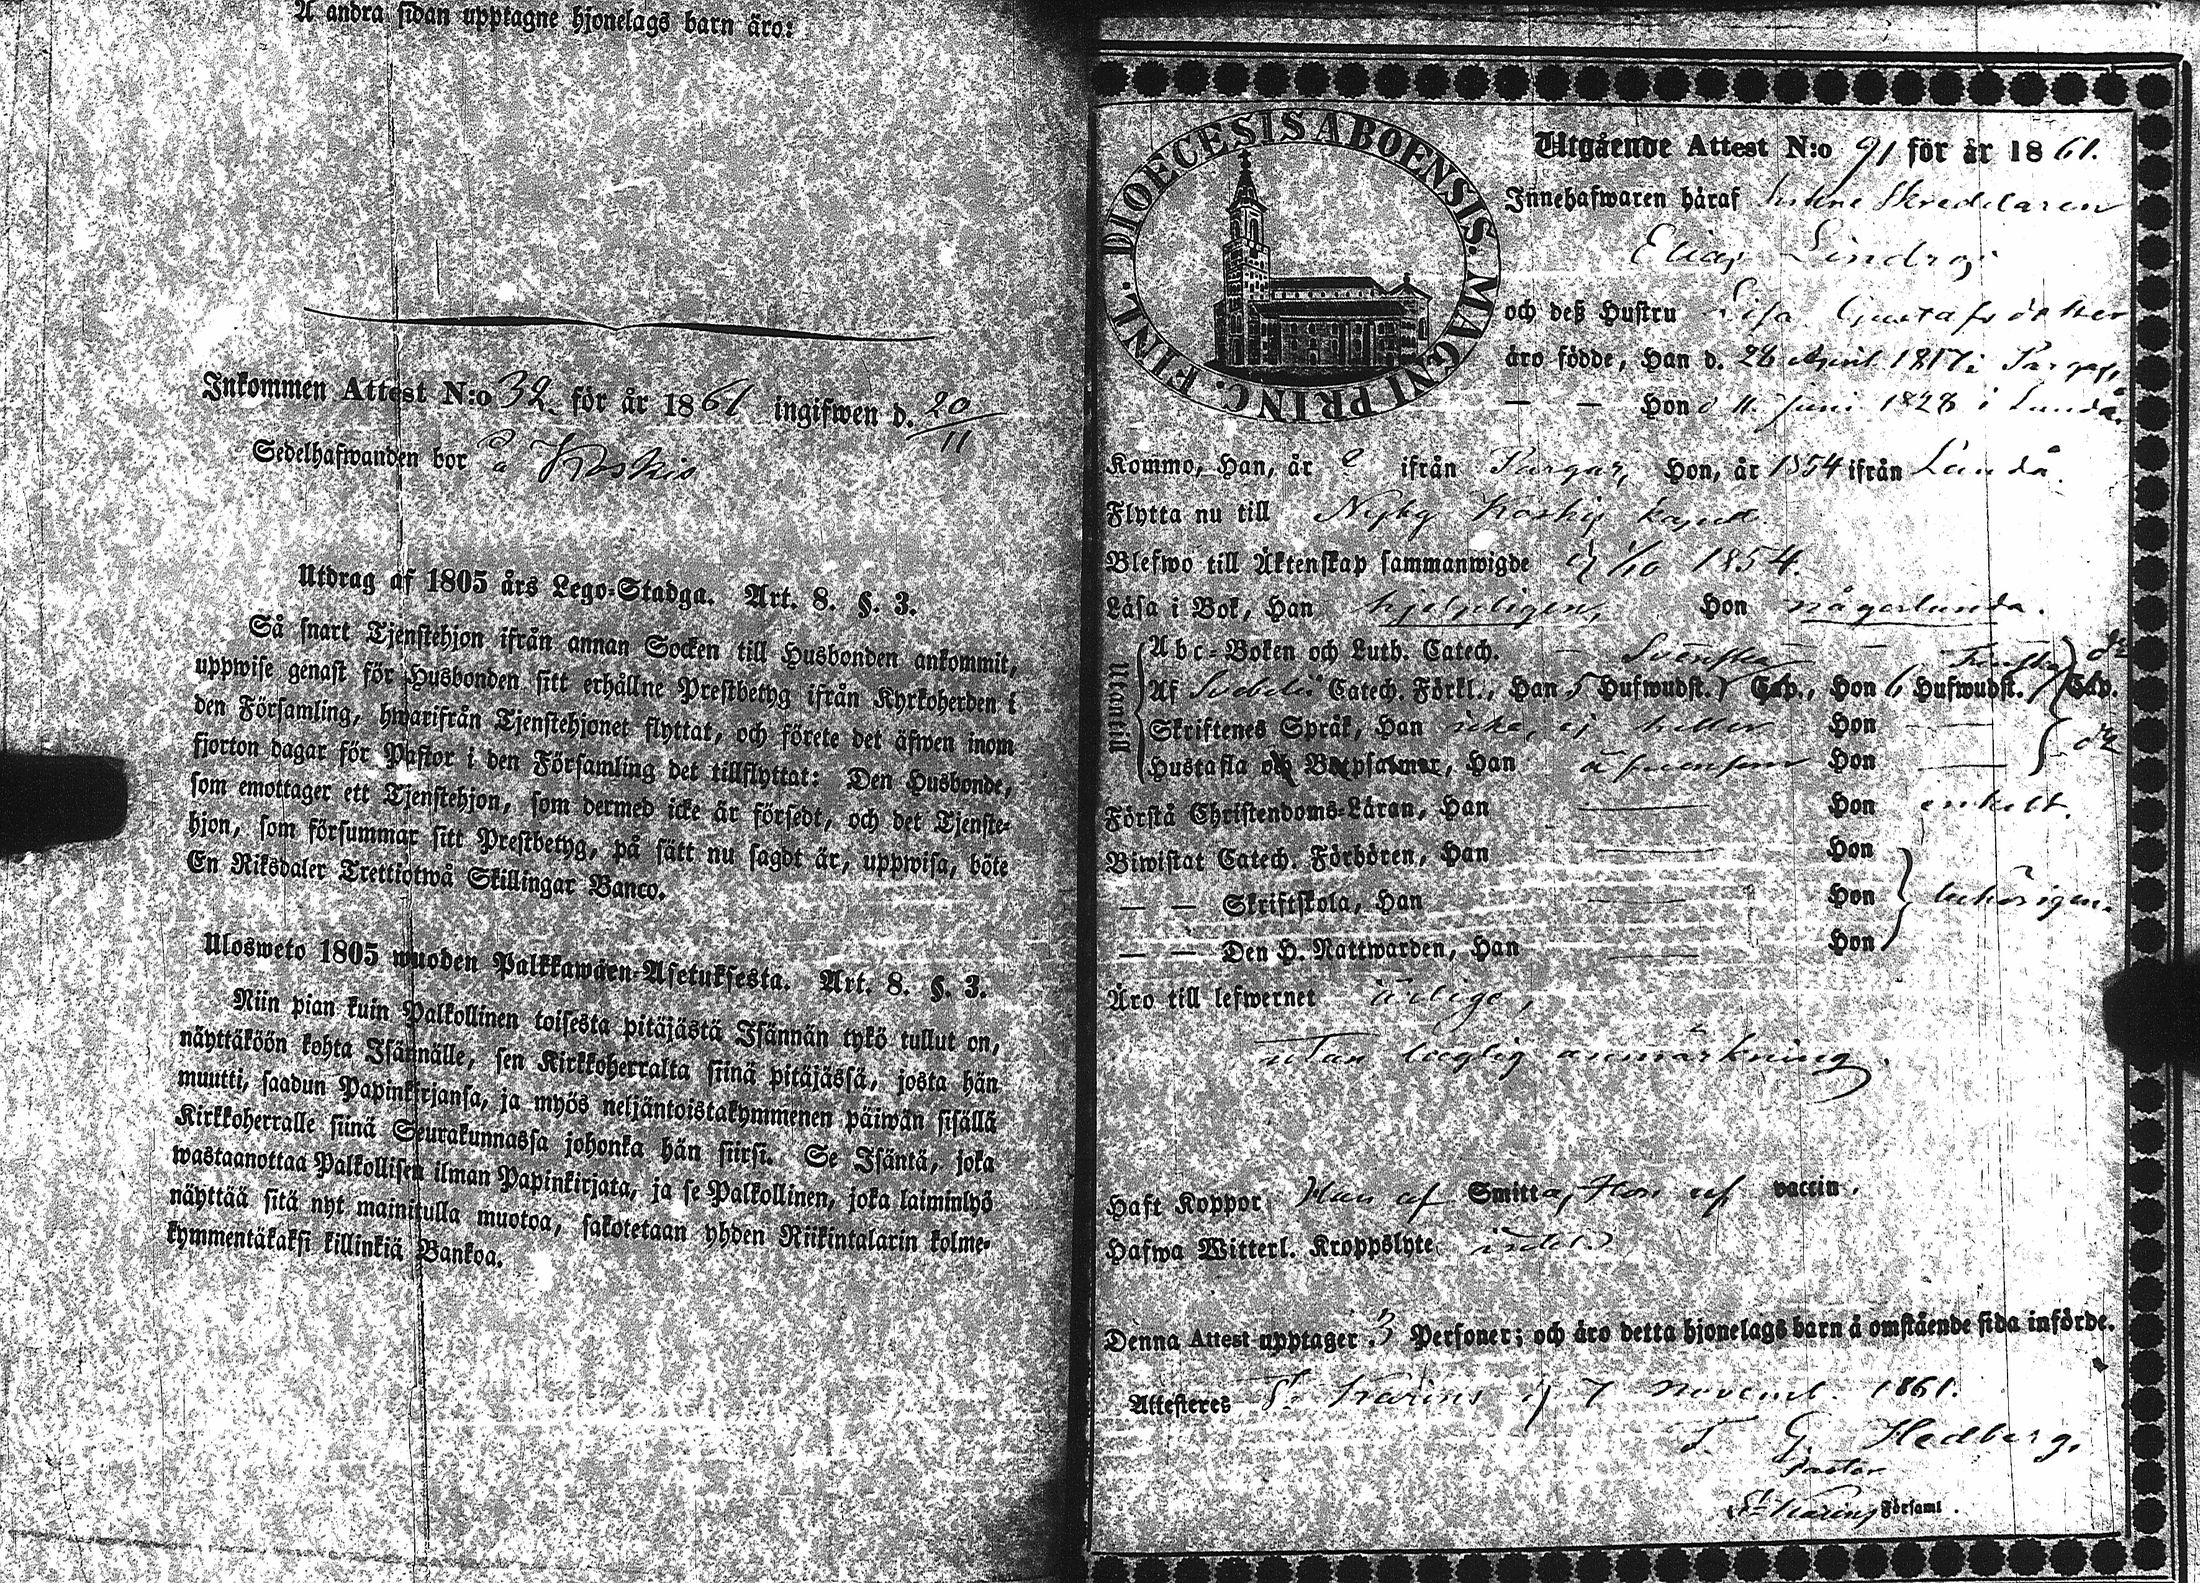 Å andra sidan upptagne hjonelags barn äro:
Inkommen Attest N:o 32 för år 1861 ingifwen d. 20/11
Sedelhafwanden bor å Koskis
Utdrag af 1805 års Lego-Stadga. Art. 8. §. 3.
Så snart Tjenstehjon ifrån annan Socken till Husbonden ankommit,
uppwise genast för Husbonden sitt erhållne Prestbetyg ifrån Kyrkoherden i
den Församling, hwarifrån Tjenstehjonet flyttat, och förete det äfwen inom
fjorton dagar för Pastor i den Församling det tillflyttat: Den Husbonde,
som emottager ett Tjenstehjon, som dermed icke är försedt, och det Tjenste-
hjon, som försummar sitt Prestbetyg, på sätt nu sagdt är, uppwisa, böte
En Riksdaler Trettiotwå Skillingar Banco.
Ulosweto 1805 wuoden Palkkawäen-Asetuksesta. Art. 8. §. 3.
Niin pian kuin Palkollinen toisesta pitäjästä Isännän tykö tullut on,
näyttäköön kohta Isännälle, sen Kirkkoherralta siinä pitäjässä, josta hän
muutti, saadun Papinkirjansa, ja myös neljäntoistakymmenen päiwän sisällä
Kirkkoherralle siinä Seurakunnassa johonka hän siirsi. Se Isäntä, joka
wastaanottaa Palkollisen ilman Papinkirjata, ja se Palkollinen, joka laiminlyö
näyttää sitä nyt mainitulla muotoa, sakotetaan yhden Riikintalarin kolme-
kymmentäkaksi killinkiä Bankoa.
DIOECESIS ABOENSIS. MAGNI PRINC. FINL.
Utgående Attest N:o 91 för år 1861.
Innehafwaren häraf Skreddaren
Elias Lindroj
och deß Hustru Lisa Gustafsdotter
äro födde, Han d. 28 April 1817 i Pargas,
— — Hon d 11 Juni 1828 i Lundå.
Kommo, Han, år ? ifrån Pargas, Hon, år 1854 ifrån Lundå.
Flytta nu till Nyby Koskis kapell
Blefwo till Äktenskap sammanwigde d 1/10 1854.
Läsa i Bok, Han hjelpligen, Hon någorlunda.
Utantill
Abc-Boken och Luth. Catech. — Svenska — Finska
Af Svebelii Catech. Förkl., Han 5 Hufwudst. Cap., Hon 6 Hufwudst. Cap.
Skriftenes Språk, Han icke, ej heller Hon —
Hustafla och Botpsalmer, Han äfvensom Hon —
Förstå Christendoms-Läran, Han — Hon enkelt.
Biwistat Catech. Förhören, Han — Hon
— — Skriftskola, Han — Hon behörigen.
— — Den H. Nattwarden, Han — Hon
Äro till lefwernet ärlige,
utan laglig anmärkning.
Haft Koppor Han af Smitta, Hon af vaccin.
Hafwa Witterl. Kroppslyte intet.
Denna Attest upptager 3 Personer; och äro detta hjonelags barn å omstående sida införde.
Attesteres St Karins d 7 Novemb. 1861.
F. G. Hedberg,
Pastor
St Karins Församl.